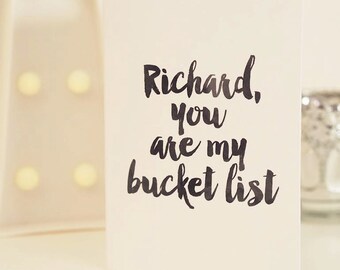 Richard,
you
are my
bucket list